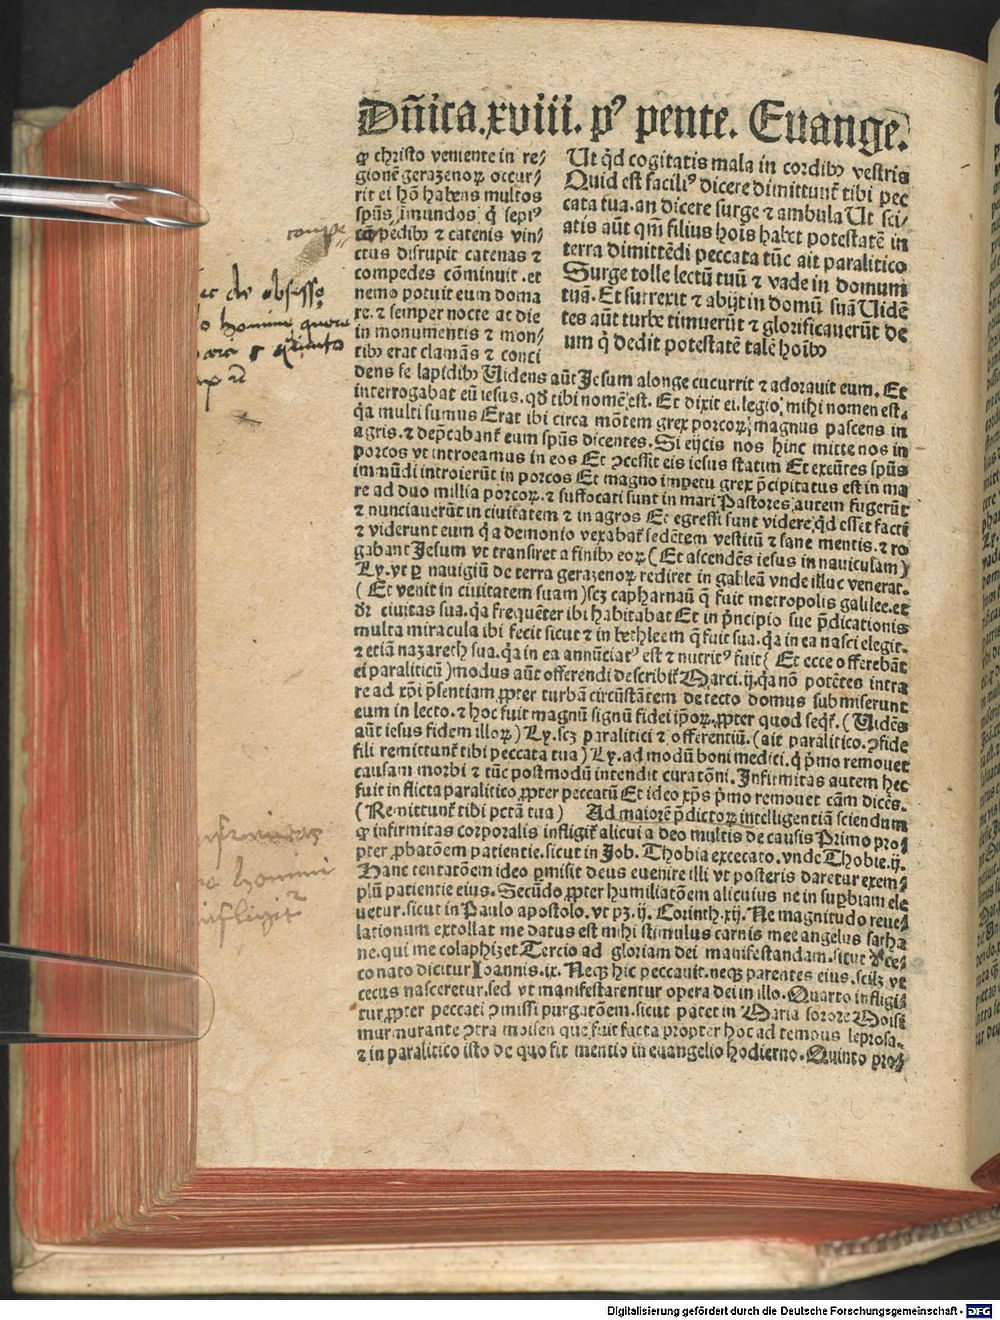 Dñica.xviii. pꝰ pente. Euange.
ꝙ christo veniente in re⸗
gionē gerazenoꝝ occur⸗
rit ei hō habens multos
spūs imundos q̇ sepiꝰ
cōpedibꝫ ⁊ catenis vin⸗
ctus disrupit catenas ⁊
compedes cōminuit .et
nemo potuit eum doma
re. ⁊ semper nocte ac die
in monumentis ⁊ mon⸗
tibꝫ erat clamās ⁊ conci
Ut qͥd cogitatis mala in cordibꝫ vestris
Quid est faciliꝰ dicere dimittunt᷑ tibi pec
cata tua.an dicere surge ⁊ ambula Ut sci⸗
atis aūt qm̄ filius hoīs habet potestatē in
terra dimittēdi peccata tūc ait paralitico
Surge tolle lectū tuū ⁊ vade in domum
tuā. Et surrexit ⁊ abijt in domū suā Uidē
tes aūt turbe timuerūt ⁊ glorificauerūt de
um q̇ dedit potestatē talē hoībꝫ
dens se lapidibꝫ Uidens aūt Jesum alonge cucurrit ⁊ adorauit eum. Et
interrogabat eū iesus. qd̄ tibi nomē est. Et dixit ei.legio mihi nomen est.
q̇a multi sumus Erat ibi circa mōtem grex porcoꝝ magnus pascens in
agris.⁊ dep̄cabant᷑ eum spūs dicentes. Si eijcis nos hinc mitte nos in
porcos vt introeamus in eos Et ꝯcessit eis iesus statim Et exeūtes spūs
immūdi introierūt in porcos Et magno impetu grex p̄cipitatus est in ma
re ad duo millia porcoꝝ.⁊ suffocati sunt in mari Pastores autem fugerūt
⁊ nunciauerūt in ciuitatem ⁊ in agros Et egressi sunt videre qͥd esset facti
⁊ viderunt eum q̇ a demonio vexabat᷑ sedētem vestitū ⁊ sane mentis.⁊ ro
gabant Jesum vt transiret a finibꝫ eoꝝ (Et ascendēs iesus in nauiculam)
Ly.vt ꝑ nauigiū de terra gerazenoꝝ rediret in galileā vnde illuc venerat.
(Et venit in ciuitatem suam)scꝫ capharnaū q̄ fuit metropolis galilee.et
dr̄ ciuitas sua.q̇a frequēter ibi habitabat Et in p̄ncipio sue p̄dicationis
multa miracula ibi fecit sicut ⁊ in bethleem q̄ fuit sua.q̇a in ea nasci elegit.
⁊ etiā nazareth sua.q̇a in ea annūciatꝰ est ⁊ nutritꝰ fuit( Et ecce offerebāt
ei paraliticū)modus aūt offerendi describit᷑ Marci.ij.q̇a nō potētes intra
re ad xp̄i p̄sentiam ꝓpter turbā circūstātem de tecto domus submiserunt
eum in lecto.⁊ hoc fuit magnū signū fidei ip̄oꝝ.ꝓpter quod seqt᷑.(Uidēs
aūt iesus fidem illoꝝ)Ly.scꝫ paralitici ⁊ offerentiū.(ait paralitico.ꝯfide
fili remittunt᷑ tibi peccata tua)Ly.ad modū boni medici.q̇ p̄mo remouet
causam morbi ⁊ tūc postmodū intendit curatōni. Infirmitas autem hec
fuit inflicta paralitico ꝓpter peccatū Et ideo xp̄s p̄mo remouet cām dicēs.
(Remittunt᷑ tibi pctā tua) Ad maiorē p̄dictoꝝ intelligentiā sciendum
ꝙ infirmitas corporalis infligit᷑ alicui a deo multis de causis Primo pro⸗
pter ꝓbatōem patientie.sicut in Job. Thobia excecato.vnde Thobie.ij.
Hanc tentatōem ideo ꝑmisit deus euenire illi vt posteris daretur exem⸗
plū patientie eius. Secūdo ꝓpter humiliatōem alicuius ne in suꝑbiam ele
uetur.sicut in Paulo apostolo.vt pꝫ.ij. Corinth.xij. Ne magnitudo reue⸗
lationum extollat me datus est mihi stimulus carnis mee angelus satha
ne.qui me colaphizet Tercio ad gloriam dei manifestandam.sicut ⁊ ce⸗
co nato dicitur Joannis.ix. Neqꝫ hic peccauit.neqꝫ parentes eius.scilꝫ vt
cecus nasceretur.sed vt manifestarentur opera dei in illo. Quarto infligi⸗
tur ꝓpter peccati ꝯmissi purgatōem.sicut patet in Maria sorore Moisi
murmurante ꝯtra moisen que fuit facta propter hoc ad tempus leprosa.
⁊ in paralitico isto de quo fit mentio in euangelio hodierno. Quinto pro⸗
de obsesso
homine quare
homini
infligit᷑
Digitalisierung gefördert durch die Deutsche Forschungsgemeinschaft - DFG